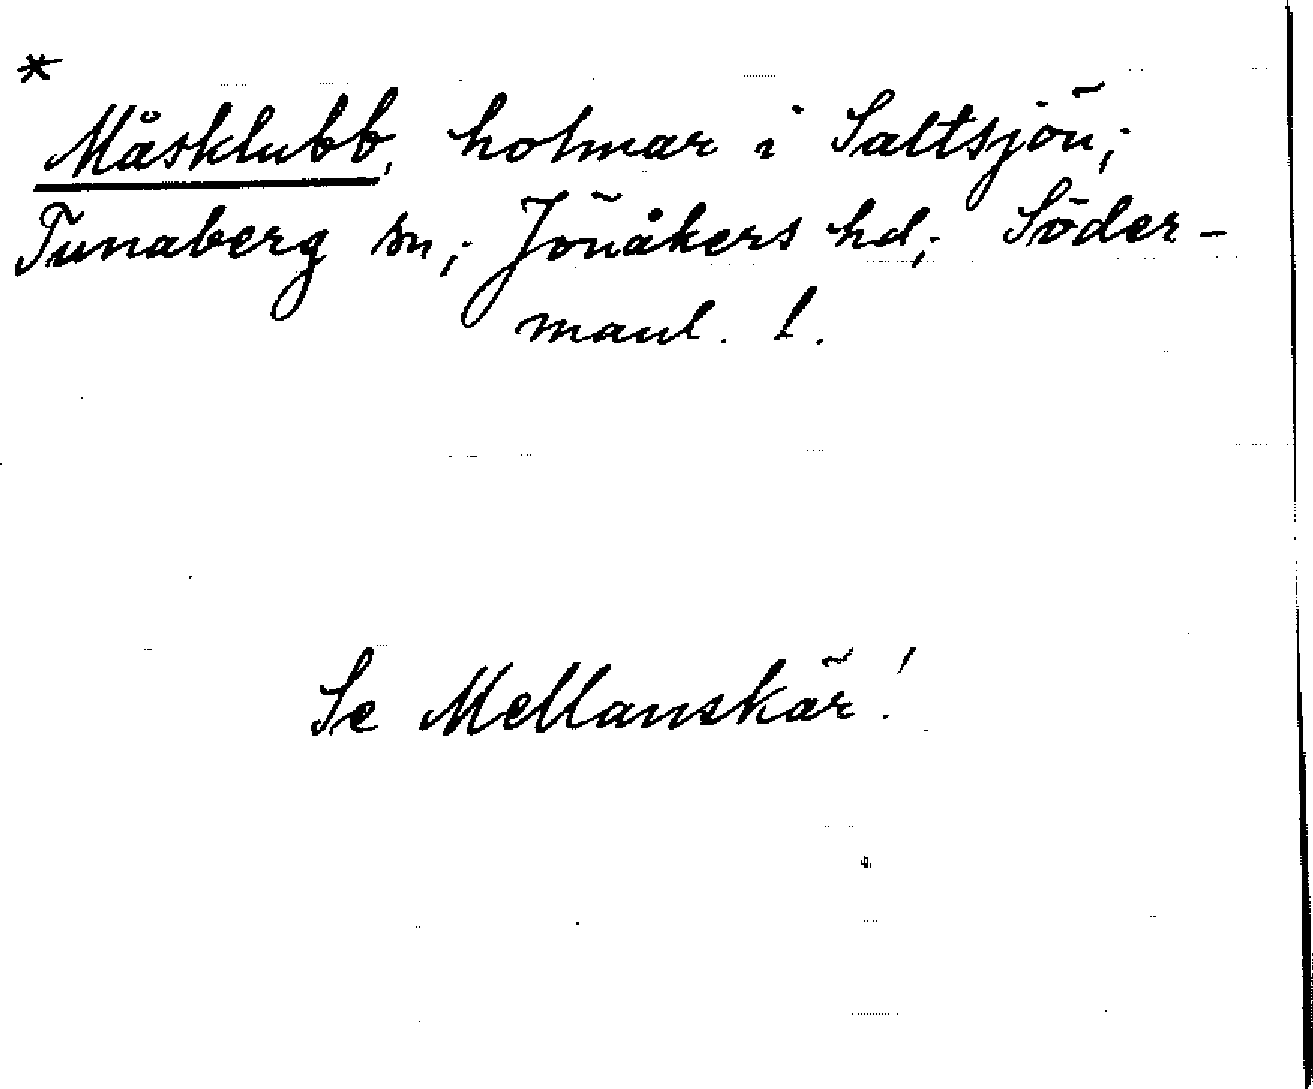 *
Måsklubb, holmar i Saltsjön;
Tunaberg sn; Jönåkers hd; Söder-
manl. l.
Se Mellanskär!